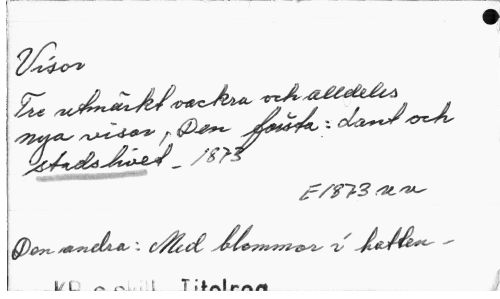 Visor
Tre utmärkt vackra och alldeles
nya visor, Den första: Lant och
stadslivet _ 1873
E1873 uu
Den andra: Med blommor i hatten -
KB e skill Titelreg